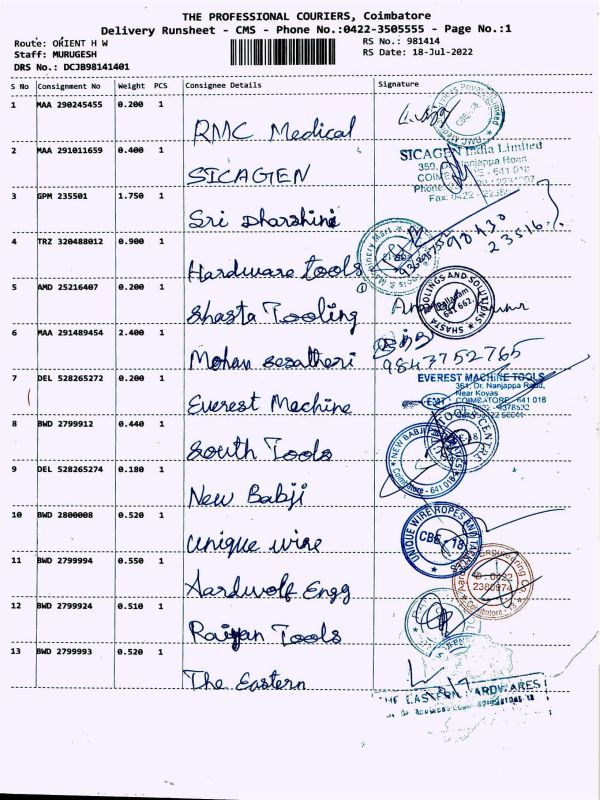 THE PROFESSIONAL COURIERS, Coimbatore
Delivery Runsheet - CMS - Phone No.:0422-3505555 - Page No.:1
Route: ORIENT H W
RS No.: 981414
Staff: MURUGESH
RS Date: 18-Jul-2022
DRS No.: DCJB98141401
S No Consignment No Weight PCS Consignee Details Signature
1 MAA 290245455 0.200 1
RMC Medical
2 MAA 291011659 0.400 1
SICAGEN India Limited
SICAGEN
3 GPM 235501 1.750 1
Sri Dharshini
98430
23516
4 TRZ 320488012 0.900 1
Hardware tools
5 AMD 25216407 0.200 1
SHASTA TOOLINGS AND SOLUTIONS
641 662
Shasta Tooling
6 MAA 291489454 2.400 1
Mohan
9843752765
7 DEL 528265272 0.200 1
EVEREST MACHINE TOOLS
361, Dr. Nanjappa Road,
Near Kovas
EMT COIMBATORE - 641 018
Everest Machine
8 BWD 2799912 0.440 1
TOOLS CENTRE
South Tools
9 DEL 528265274 0.180 1
NEW BABJI
Coimbatore - 641 018
New Babji
10 BWD 2800008 0.520 1
UNIQUE WIRE ROPES AND TACKLES
CBE - 18
Unique wire
11 BWD 2799994 0.550 1
0422
2380974
Coimbatore - 18
Aardwolf Engg
12 BWD 2799924 0.510 1
Raiyan Tools
13 BWD 2799993 0.520 1
The Eastern
THE EASTERN HARDWARES